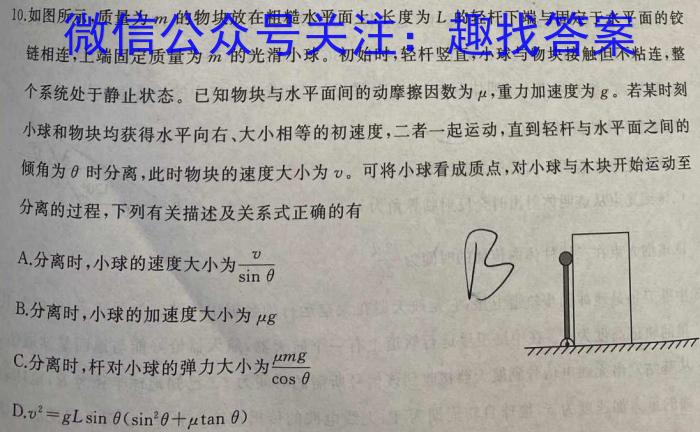 10.如图所示,质量为 m 的物块放在粗糙水平面上,长度为 L 的轻杆下端与固定于水平面的铰
微信公众号关注:趣找答案
链相连,上端固定质量为 m 的光滑小球。初始时,轻杆竖直,小球与物块接触但不粘连,整
个系统处于静止状态。已知物块与水平面间的动摩擦因数为 μ,重力加速度为 g。若某时刻
小球和物块均获得水平向右、大小相等的初速度,二者一起运动,直到轻杆与水平面之间的
倾角为 θ 时分离,此时物块的速度大小为 v。可将小球看成质点,对小球与木块开始运动至
分离的过程,下列有关描述及关系式正确的有
A.分离时,小球的速度大小为 v/sin θ
B.分离时,小球的加速度大小为 μg
C.分离时,杆对小球的弹力大小为 μmg/cos θ
D.v²=gLsin θ(sin²θ+μtan θ)
B